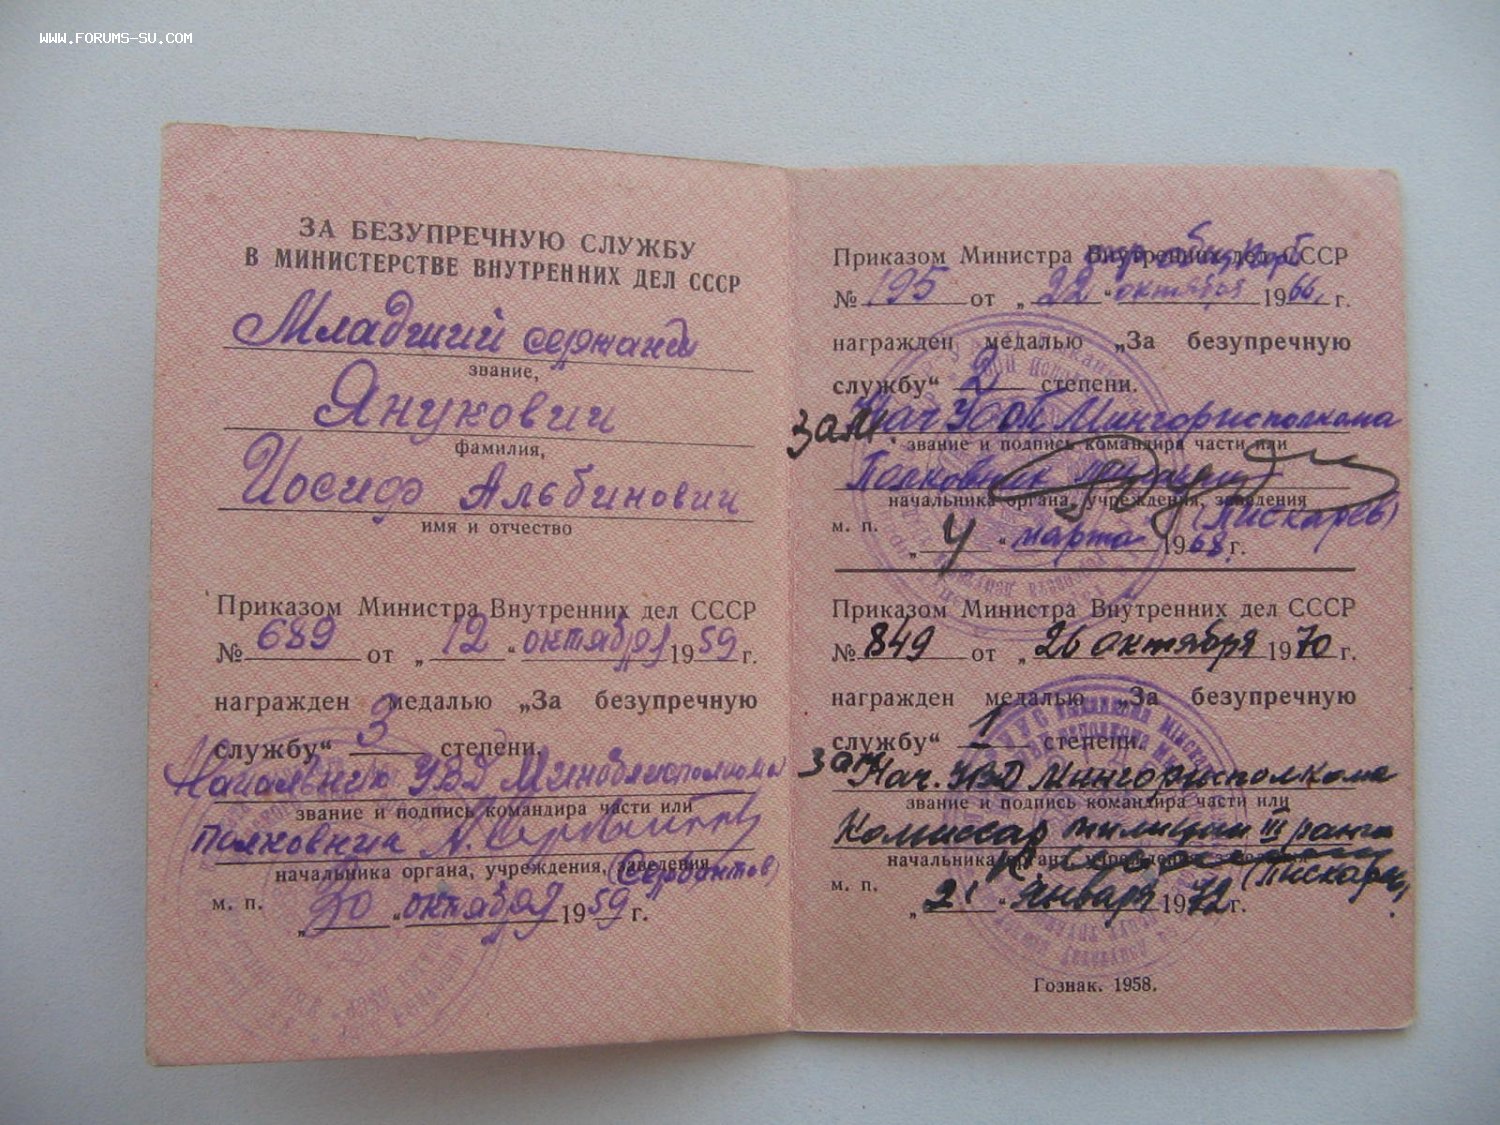 WWW.FORUMS-SU.COM
ЗА БЕЗУПРЕЧНУЮ СЛУЖБУ
В МИНИСТЕРСТВЕ ВНУТРЕННИХ ДЕЛ СССР
Младший сержант
звание,
Янукович
фамилия,
Иосиф Альбинович
имя и отчество
Приказом Министра Внутренних дел СССР
№ 689 от „12“ октября 1959 г.
награжден медалью „За безупречную
службу“ 3 степени.
Начальник УВД Миноблисполкома
звание и подпись командира части или
Полковник
начальника органа, учреждения, заведения
(Сербантов)
м. п. „30“ октября 1959 г.
Приказом Министра Внутренних дел СССР
№ 195 от „22“ октября 1966 г.
награжден медалью „За безупречную
службу“ 2 степени.
Зам. Нач УООП Мингорисполкома
звание и подпись командира части или
Полковник милиции
начальника органа, учреждения, заведения
(Пискарев)
м. п. „4“ марта 1968 г.
Приказом Министра Внутренних дел СССР
№ 849 от „26 октября 1970 г.
награжден медалью „За безупречную
службу“ 1 степени.
зам Нач. УВД Мингорисполкома
звание и подпись командира части или
Комиссар милиции III ранга
начальника органа, учреждения, заведения
(Пискарев)
м. п. „21“ января 1972 г.
Гознак. 1958.